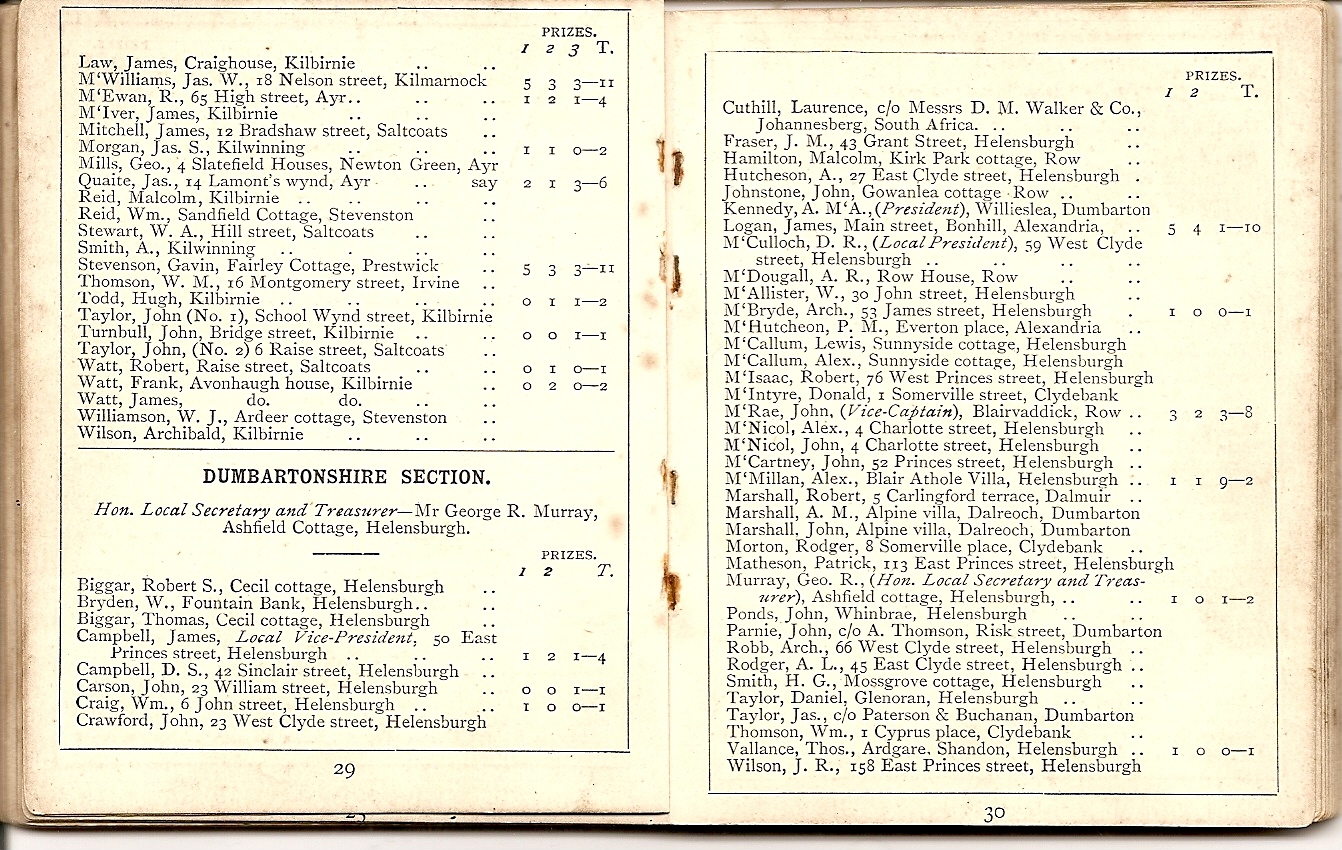 PRIZES.
1 2 3 T.
Law, James, Craighouse, Kilbirnie .. ..
M‘Williams, Jas. W., 18 Nelson street, Kilmarnock 5 3 3—11
M‘Ewan, R., 65 High street, Ayr.. .. .. 1 2 1—4
M‘Iver, James, Kilbirnie .. .. ..
Mitchell, James, 12 Bradshaw street, Saltcoats ..
Morgan, Jas. S., Kilwinning .. .. .. 1 1 0—2
Mills, Geo., 4 Slatefield Houses, Newton Green, Ayr
Quaite, Jas., 14 Lamont's wynd, Ayr .. say 2 1 3—6
Reid, Malcolm, Kilbirnie .. .. .. ..
Reid, Wm., Sandfield Cottage, Stevenston ..
Stewart, W. A., Hill street, Saltcoats .. ..
Smith, A., Kilwinning .. . .. ..
Stevenson, Gavin, Fairley Cottage, Prestwick .. 5 3 3—11
Thomson, W. M., 16 Montgomery street, Irvine ..
Todd, Hugh, Kilbirnie .. .. .. .. 0 1 1—2
Taylor, John (No. 1), School Wynd street, Kilbirnie
Turnbull, John, Bridge street, Kilbirnie .. .. 0 0 1—1
Taylor, John, (No. 2) 6 Raise street, Saltcoats ..
Watt, Robert, Raise street, Saltcoats .. .. 0 1 0—1
Watt, Frank, Avonhaugh house, Kilbirnie .. 0 2 0—2
Watt, James, do. do. .. ..
Williamson, W. J., Ardeer cottage, Stevenston ..
Wilson, Archibald, Kilbirnie .. .. ..
DUMBARTONSHIRE SECTION.
Hon. Local Secretary and Treasurer—Mr George R. Murray,
Ashfield Cottage, Helensburgh.
PRIZES.
1 2 T.
Biggar, Robert S., Cecil cottage, Helensburgh ..
Bryden, W., Fountain Bank, Helensburgh.. ..
Biggar, Thomas, Cecil cottage, Helensburgh ..
Campbell, James, Local Vice-President, 50 East
Princes street, Helensburgh .. .. .. 1 2 1—4
Campbell, D. S., 42 Sinclair street, Helensburgh ..
Carson, John, 23 William street, Helensburgh .. 0 0 1—1
Craig, Wm., 6 John street, Helensburgh .. .. 1 0 0—1
Crawford, John, 23 West Clyde street, Helensburgh
29
PRIZES.
1 2 T.
Cuthill, Laurence, c/o Messrs D. M. Walker & Co.,
Johannesberg, South Africa. .. .. ..
Fraser, J. M., 43 Grant Street, Helensburgh ..
Hamilton, Malcolm, Kirk Park cottage, Row ..
Hutcheson, A., 27 East Clyde street, Helensburgh .
Johnstone, John, Gowanlea cottage Row .. ..
Kennedy, A. M‘A., (President), Willieslea, Dumbarton
Logan, James, Main street, Bonhill, Alexandria, .. 5 4 1—10
M‘Culloch, D. R., (Local President), 59 West Clyde
street, Helensburgh .. .. .. ..
M‘Dougall, A. R., Row House, Row .. ..
M‘Allister, W., 30 John street, Helensburgh ..
M‘Bryde, Arch., 53 James street, Helensburgh . 1 0 0—1
M‘Hutcheon, P. M., Everton place, Alexandria ..
M‘Callum, Lewis, Sunnyside cottage, Helensburgh
M‘Callum, Alex., Sunnyside cottage, Helensburgh
M‘Isaac, Robert, 76 West Princes street, Helensburgh
M‘Intyre, Donald, 1 Somerville street, Clydebank
M‘Rae, John, (Vice-Captain), Blairvaddick, Row .. 3 2 3—8
M‘Nicol, Alex., 4 Charlotte street, Helensburgh ..
M‘Nicol, John, 4 Charlotte street, Helensburgh ..
M‘Cartney, John, 52 Princes street, Helensburgh ..
M‘Millan, Alex., Blair Athole Villa, Helensburgh .. 1 1 9—2
Marshall, Robert, 5 Carlingford terrace, Dalmuir ..
Marshall, A. M., Alpine villa, Dalreoch, Dumbarton
Marshall, John, Alpine villa, Dalreoch, Dumbarton
Morton, Rodger, 8 Somerville place, Clydebank ..
Matheson, Patrick, 113 East Princes street, Helensburgh
Murray, Geo. R., (Hon. Local Secretary and Treas-
urer), Ashfield cottage, Helensburgh, .. .. 1 0 1—2
Ponds, John, Whinbrae, Helensburgh .. ..
Parnie, John, c/o A. Thomson, Risk street, Dumbarton
Robb, Arch., 66 West Clyde street, Helensburgh ..
Rodger, A. L., 45 East Clyde street, Helensburgh ..
Smith, H. G., Mossgrove cottage, Helensburgh ..
Taylor, Daniel, Glenoran, Helensburgh .. ..
Taylor, Jas., c/o Paterson & Buchanan, Dumbarton
Thomson, Wm., 1 Cyprus place, Clydebank ..
Vallance, Thos., Ardgare, Shandon, Helensburgh .. 1 0 0—1
Wilson, J. R., 158 East Princes street, Helensburgh
30